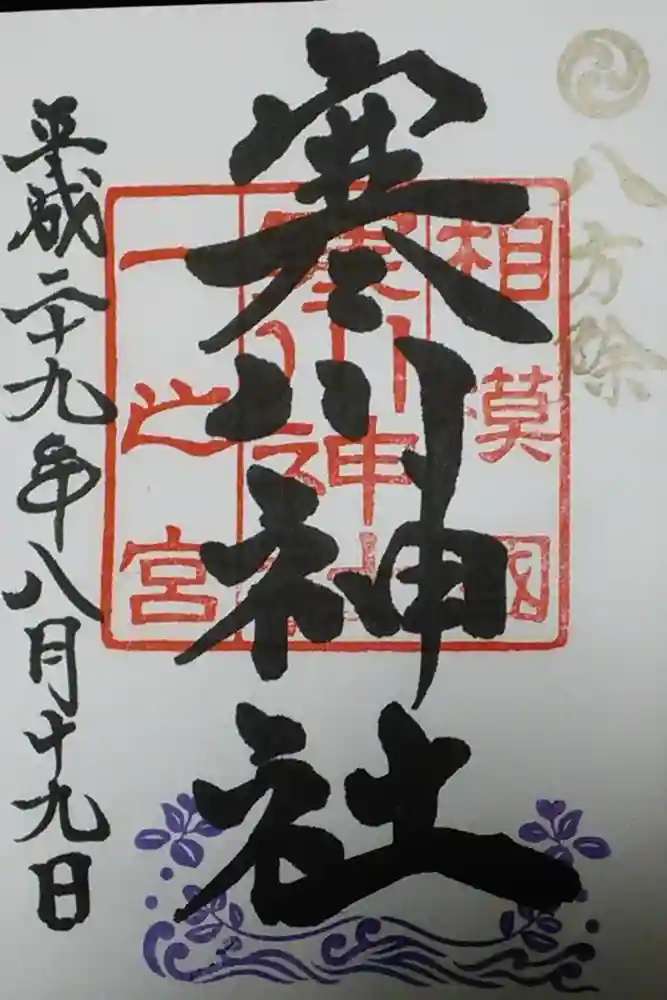 八方除
相模國
寒川神社
一之宮
寒川神社
平成二十九年八月十九日